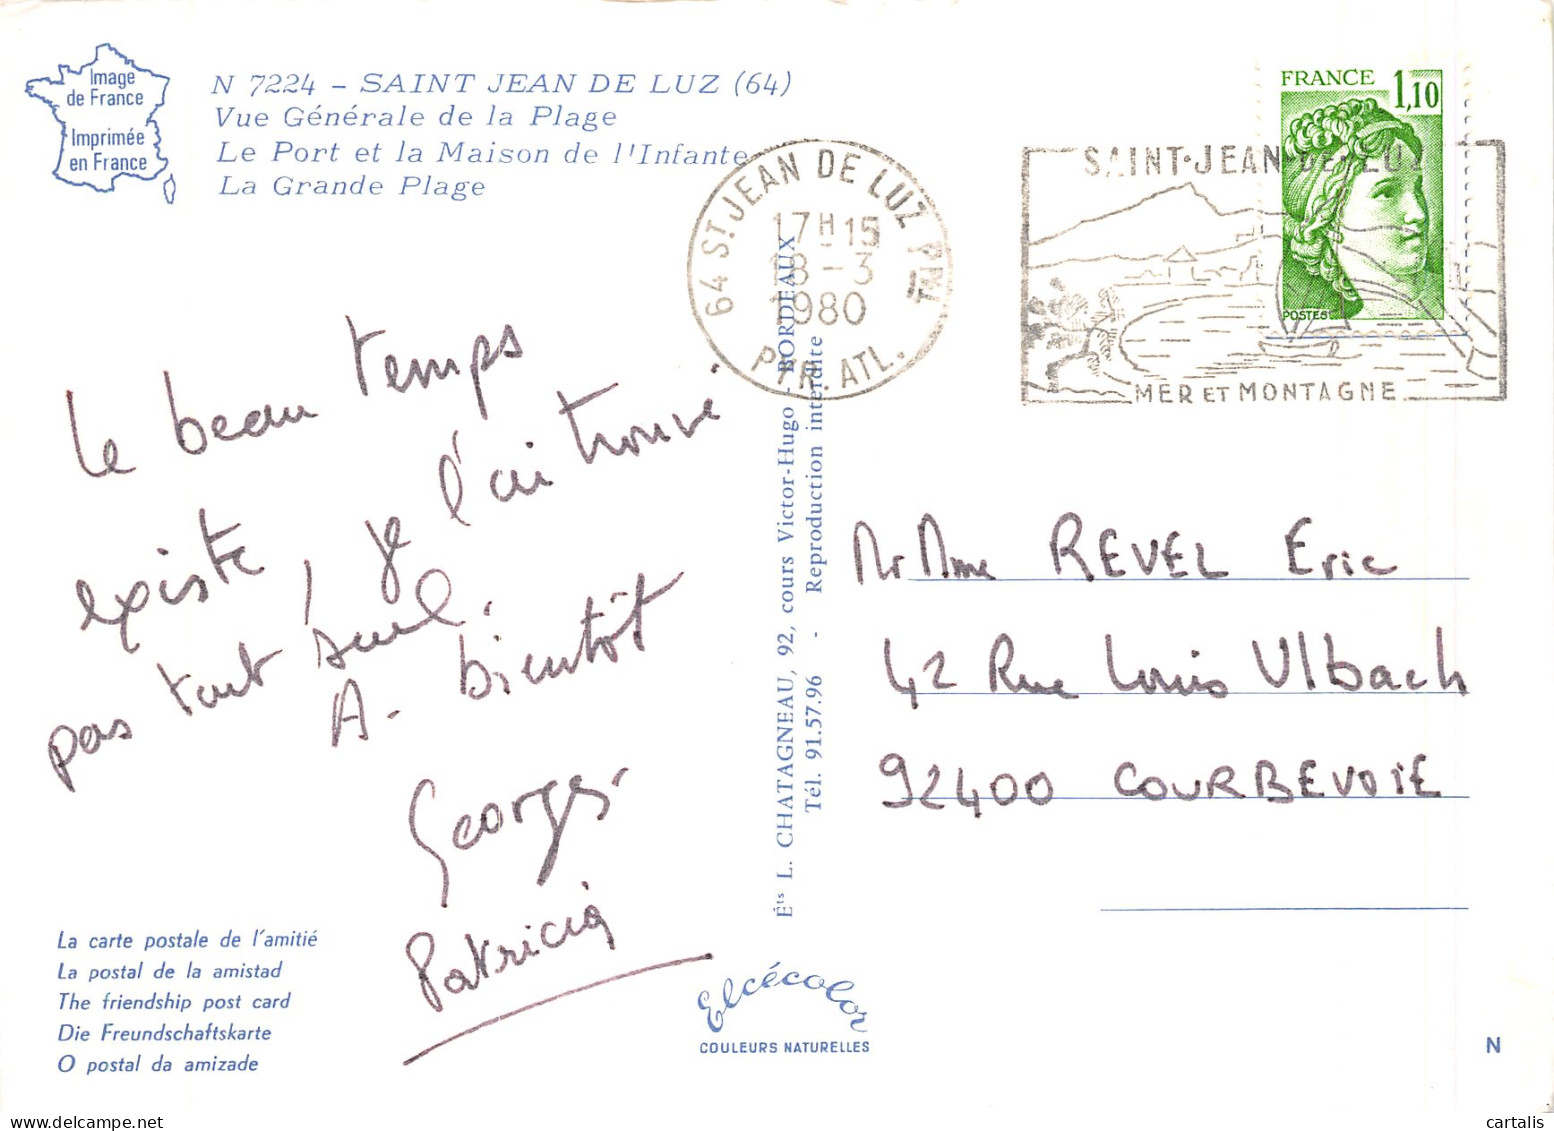 Image
de France
Imprimée
en France
N 7224 - SAINT JEAN DE LUZ (64)
Vue Générale de la Plage
Le Port et la Maison de l'Infante
La Grande Plage
64 ST. JEAN DE LUZ PPAL
17H15
18-3
1980
PYR. ATL.
SAINT-JEAN-DE-LUZ
MER ET MONTAGNE
FRANCE 1,10
POSTES
Le beau temps
existe, je l'ai trouvé
pas tout seul.
A bientôt
Georges
Patricia
Mr Mme REVEL Eric
42 Rue Louis Ulbach
92400 COURBEVOIE
Éts L. CHATAGNEAU, 92, cours Victor-Hugo - BORDEAUX
Tél. 91.57.96 - Reproduction interdite
La carte postale de l'amitié
La postal de la amistad
The friendship post card
Die Freundschaftskarte
O postal da amizade
Elcécolor
COULEURS NATURELLES
N
cartalis